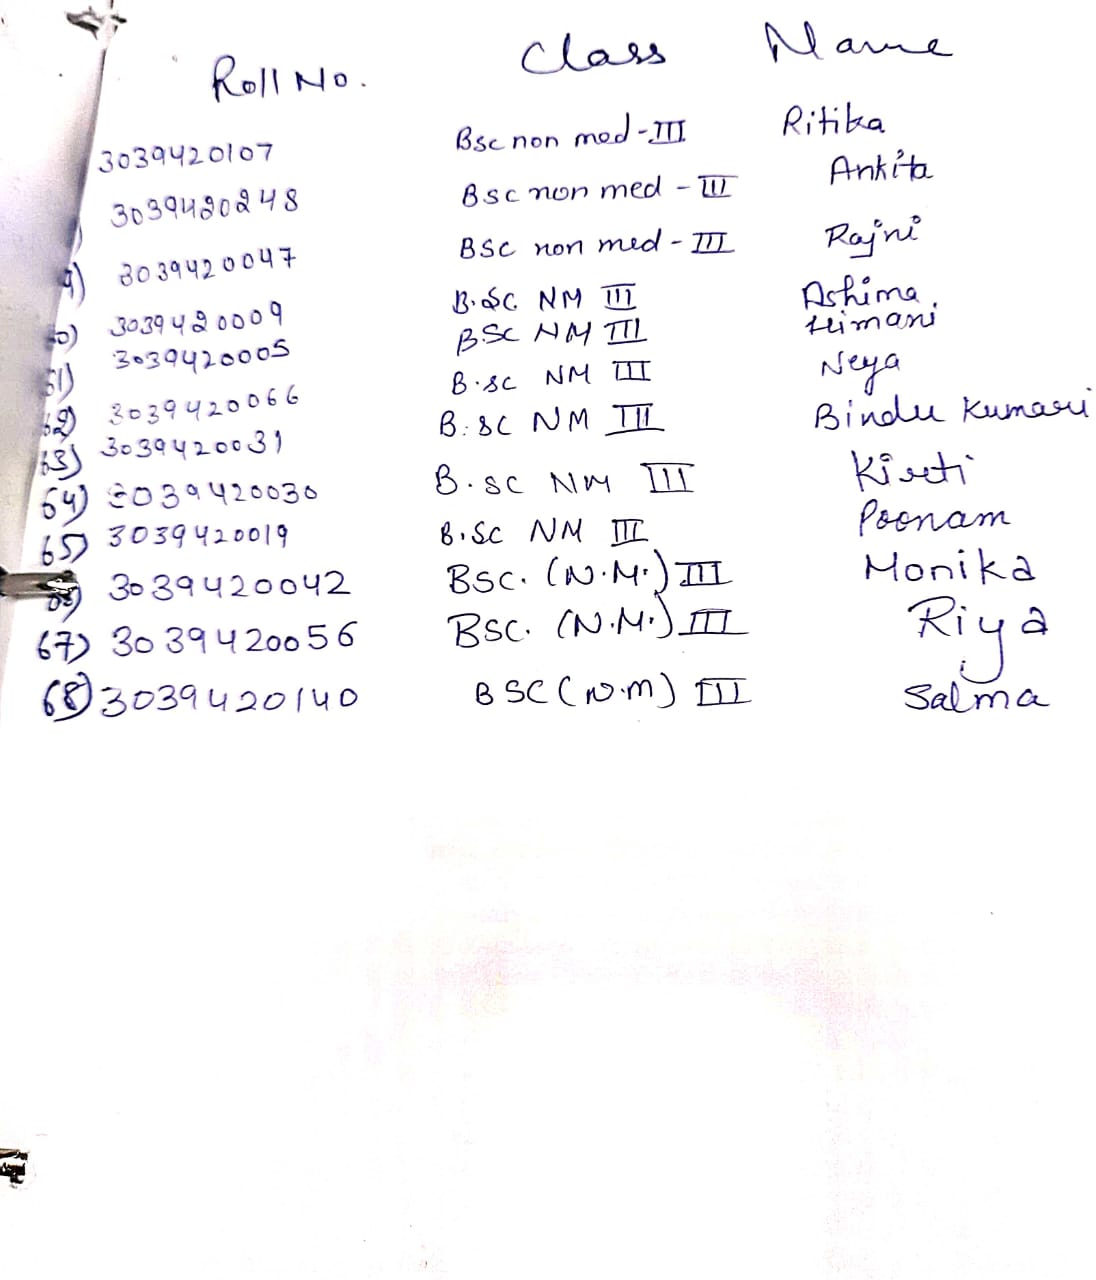 Roll No. Class Name
3039420107 Bsc non med - III Ritika
3039420248 Bsc non med - III Ankita
9) 3039420047 BSC non med - III Rajni
60) 3039420009 B.SC NM III Ashima.
61) 3039420005 BSC NM III Himani
62) 3039420066 B.sc NM III Neya
63) 3039420031 B.SC NM III Bindu Kumari
64) 3039420030 B.SC NM III Kirti
65) 3039420019 B.SC NM III Poonam
3039420042 BSC. (N.M.) III Monika
67) 3039420056 BSC. (N.M.) III Riya
68) 3039420140 BSC (N.m) III Salma